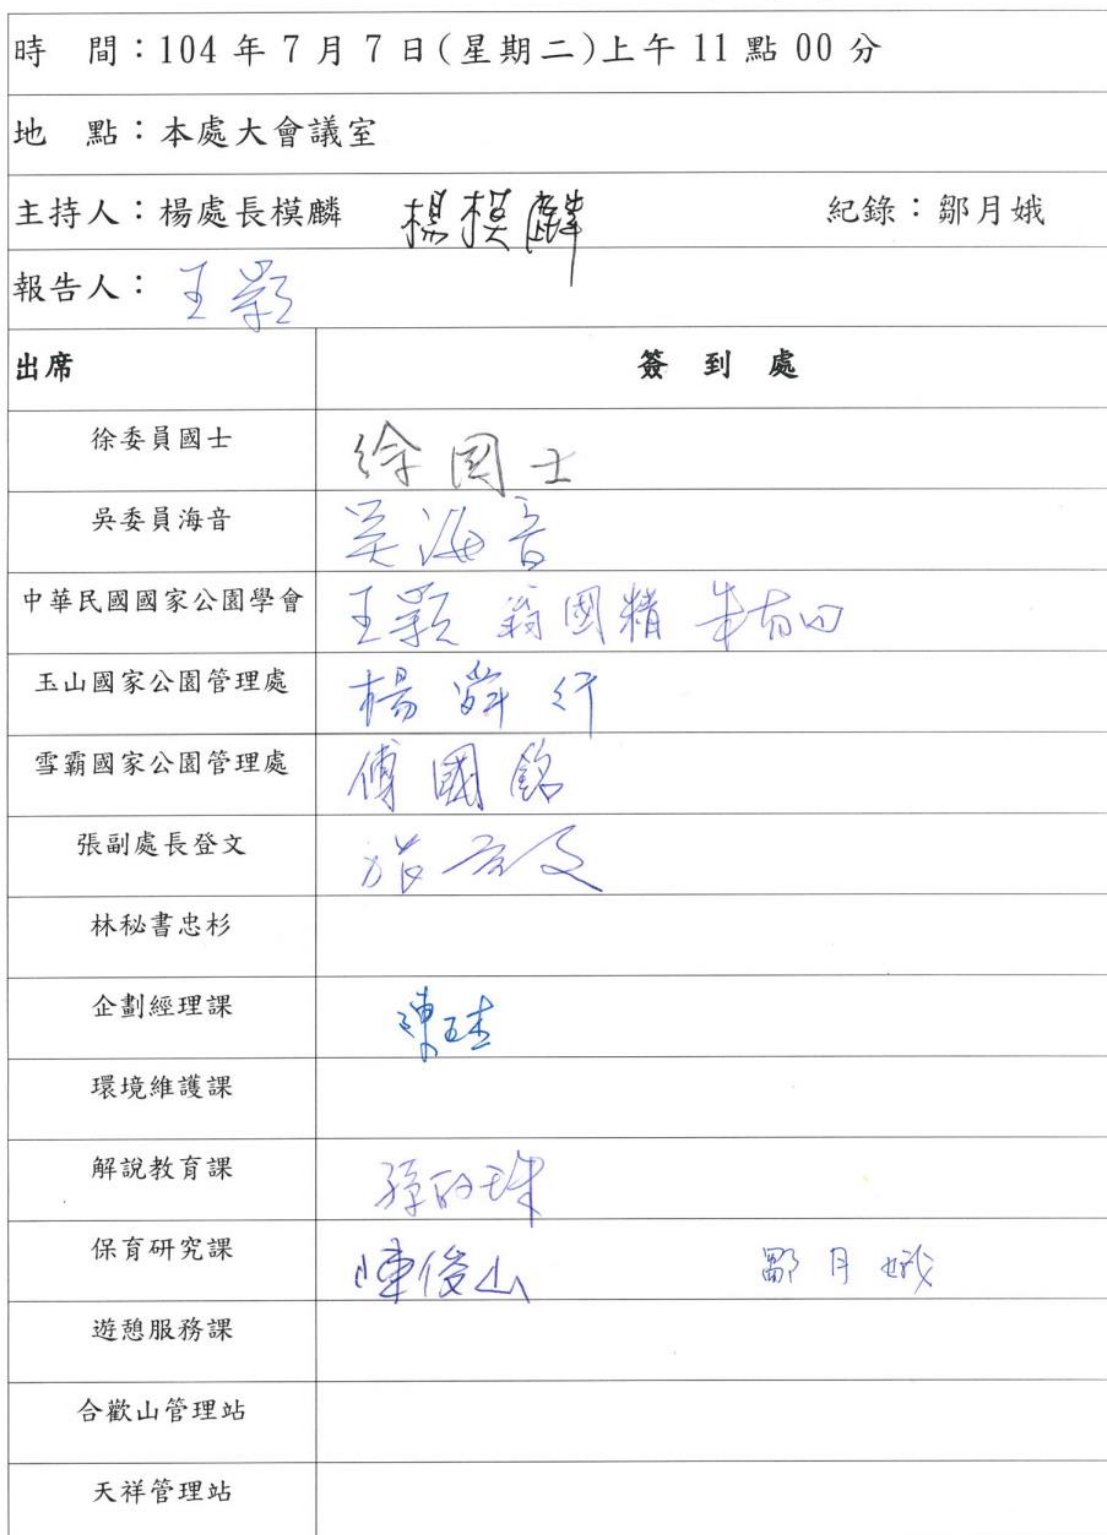 時　間：104 年 7 月 7 日(星期二)上午 11 點 00 分
地　點：本處大會議室
主持人：楊處長模麟　楊模麟　紀錄：鄒月娥
報告人：王穎
出席　簽 到 處
徐委員國士　徐國士
吳委員海音　吳海音
中華民國國家公園學會　王穎 翁國精
玉山國家公園管理處　楊舜行
雪霸國家公園管理處　傅國銘
張副處長登文　張登文
林秘書忠杉
企劃經理課
環境維護課
解說教育課
保育研究課　陳俊山　鄒月娥
遊憩服務課
合歡山管理站
天祥管理站